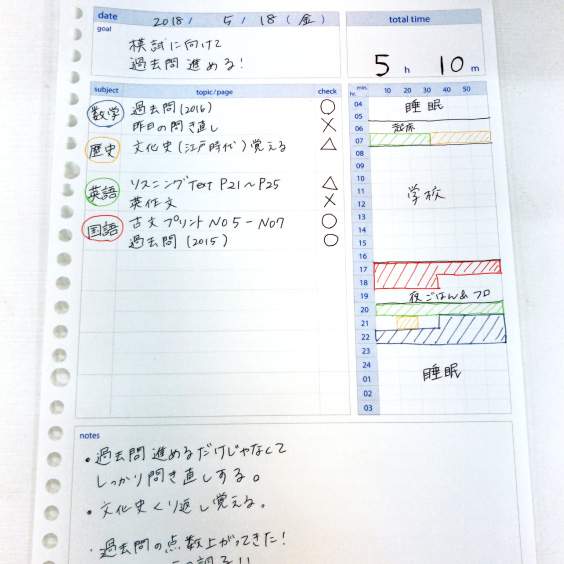 date 2018 / 5 / 18 (金)
total time
goal
模試に向けて
過去問 進める!
5 h 10 m
subject topic/page check
数学 過去問 (2016) ○
昨日の問き直し ×
歴史 文化史 (江戸時代) 覚える △
英語 リスニング Text P21~P25 △
英作文 ×
国語 古文プリント No5-No7 ○
過去問 (2015) ○
min. 10 20 30 40 50
hr.
04 睡眠
05
06 起床
07
08
09
10
11 学校
12
13
14
15
16
17
18
19 夜ごはん&フロ
20
21
22
23
24
01 睡眠
02
03
notes
・過去問 進めるだけじゃなくて
しっかり問き直しする。
・文化史くり返し覚える。
・過去問の点数上がってきた!
の調子!!